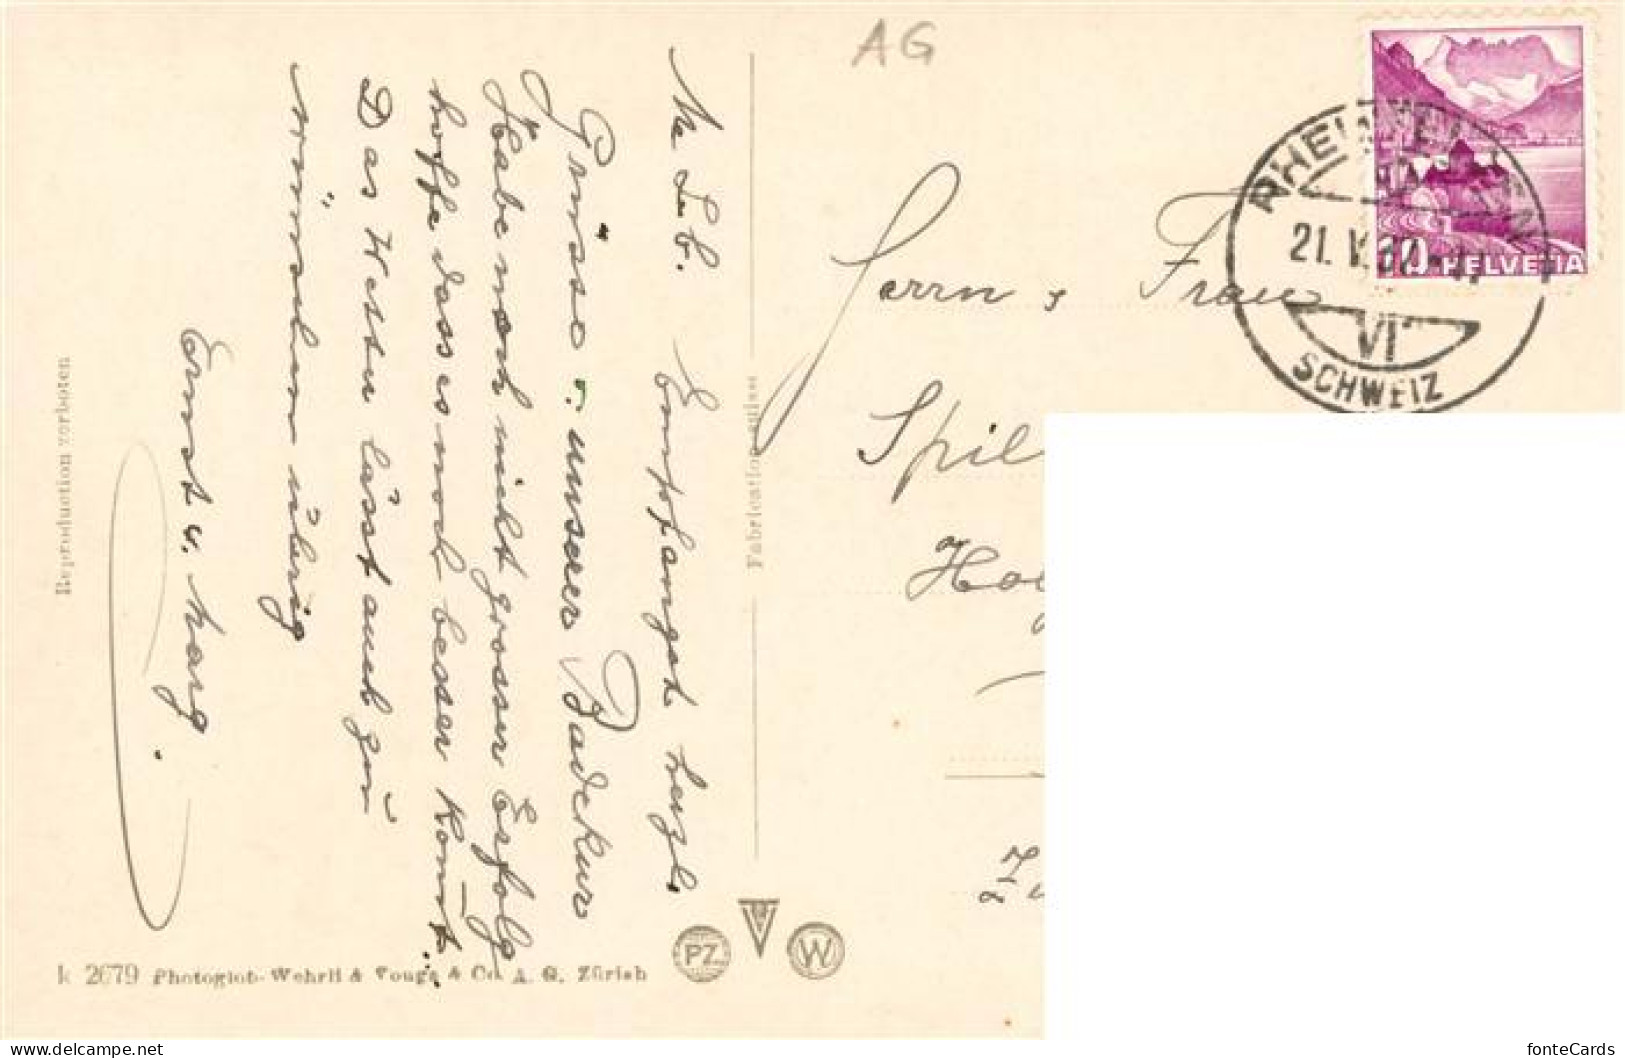 AG
Me Lb.
Empfanget herzl.
Grüsse v. unserer Badekur
Habe noch nicht grossen Erfolg
hoffe dass es noch besser komt.
Das Wetter lässt auch zu
wünschen übrig
Ernst u. Marg.
Reproduction verboten
k 2679 Photoglob-Wehrli & Vouga & Co. A. G. Zürich
Fabrication suisse
PZ
W
Herrn & Frau
Spil
Ho
RHEINFELDEN
21. V.
VI
SCHWEIZ
10 HELVETIA
delcampe.net
fonteCards